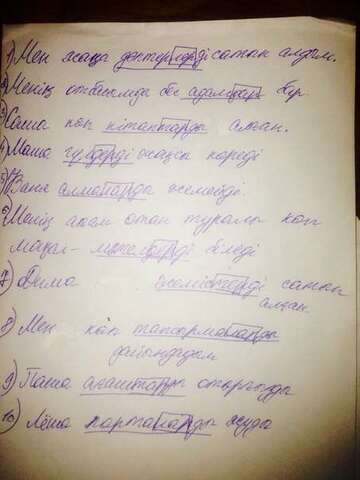 1) Мен жаңа дәптерлерді сатып алдым.
2) Менің отбасымда бес адамдар бар
3) Саша көп кітаптарды алған.
4) Маша гүлдерді жақсы көреді
5) Ваня алмаларды жемейді.
6) Менің анам отан туралы көп
мақал-мәтелдерді біледі
7) Дима жемістерді сатып
алған
8) Мен көп тапсырмаларды
дайындадым
9) Паша ағаштарды отырғызды
10) Лёша парталарды жуды